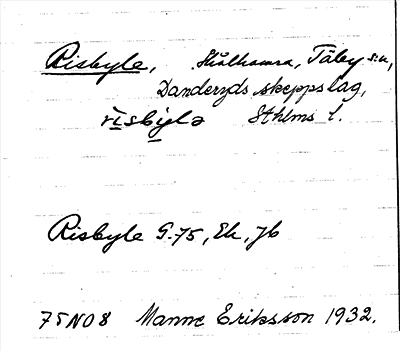 Risbyle, Skålhamra, Täby sn,
Danderyds skeppslag,
rìsbỳlə Sthlms l.
Risbyle G. 75, Ek, Jb
75 NO 8 Manne Eriksson 1932.